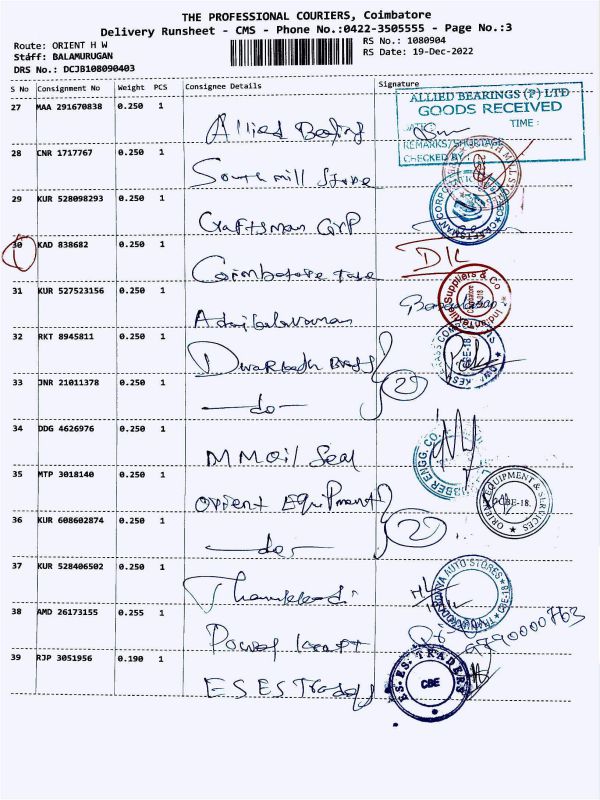 THE PROFESSIONAL COURIERS, Coimbatore
Delivery Runsheet - CMS - Phone No.:0422-3505555 - Page No.:3
Route: ORIENT H W
RS No.: 1080904
Staff: BALAMURUGAN
RS Date: 19-Dec-2022
DRS No.: DCJB108090403
S No Consignment No Weight PCS Consignee Details Signature
27 MAA 291670838 0.250 1
ALLIED BEARINGS (P) LTD
GOODS RECEIVED
TIME :
REMARKS/SHORTAGE
CHECKED BY :
Allied Bearing
28 CNR 1717767 0.250 1
South mill Store
29 KUR 528098293 0.250 1
Craftsman
30 KAD 838682 0.250 1
Coimbatore
31 KUR 527523156 0.250 1
Suppliers & Co
32 RKT 8945811 0.250 1
33 JNR 21011378 0.250 1
-do-
34 DDG 4626976 0.250 1
MM Oil Seal
35 MTP 3018140 0.250 1
Orient Equipment
ORIENT EQUIPMENT & SERVICES
CBE-18.
36 KUR 608602874 0.250 1
-do-
37 KUR 528406502 0.250 1
AUTO STORES
38 AMD 26173155 0.255 1
Power
39 RJP 3051956 0.190 1
E S ES Traders
E.S. ES. TRADERS
CBE